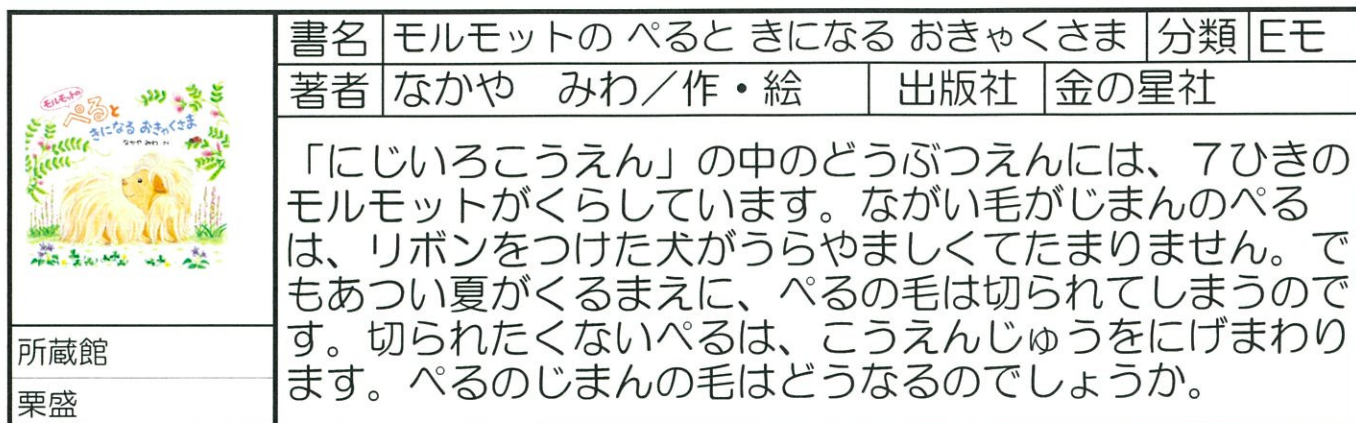 書名 モルモットの ぺると きになる おきゃくさま 分類 Eモ
著者 なかや みわ／作・絵 出版社 金の星社
モルモットの
ぺると
きになる おきゃくさま
「にじいろこうえん」の中のどうぶつえんには、７ひきの
モルモットがくらしています。ながい毛がじまんのぺる
は、リボンをつけた犬がうらやましくてたまりません。で
もあつい夏がくるまえに、ぺるの毛は切られてしまうので
す。切られたくないぺるは、こうえんじゅうをにげまわり
ます。ぺるのじまんの毛はどうなるのでしょうか。
所蔵館
栗盛